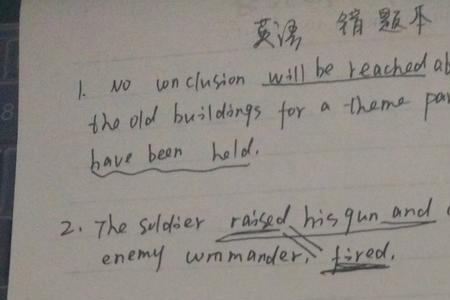 英语 错题本
1. No conclusion will be reached
the old buildings for a theme
have been held.
2. The soldier raised his gun and
enemy commander, fired.